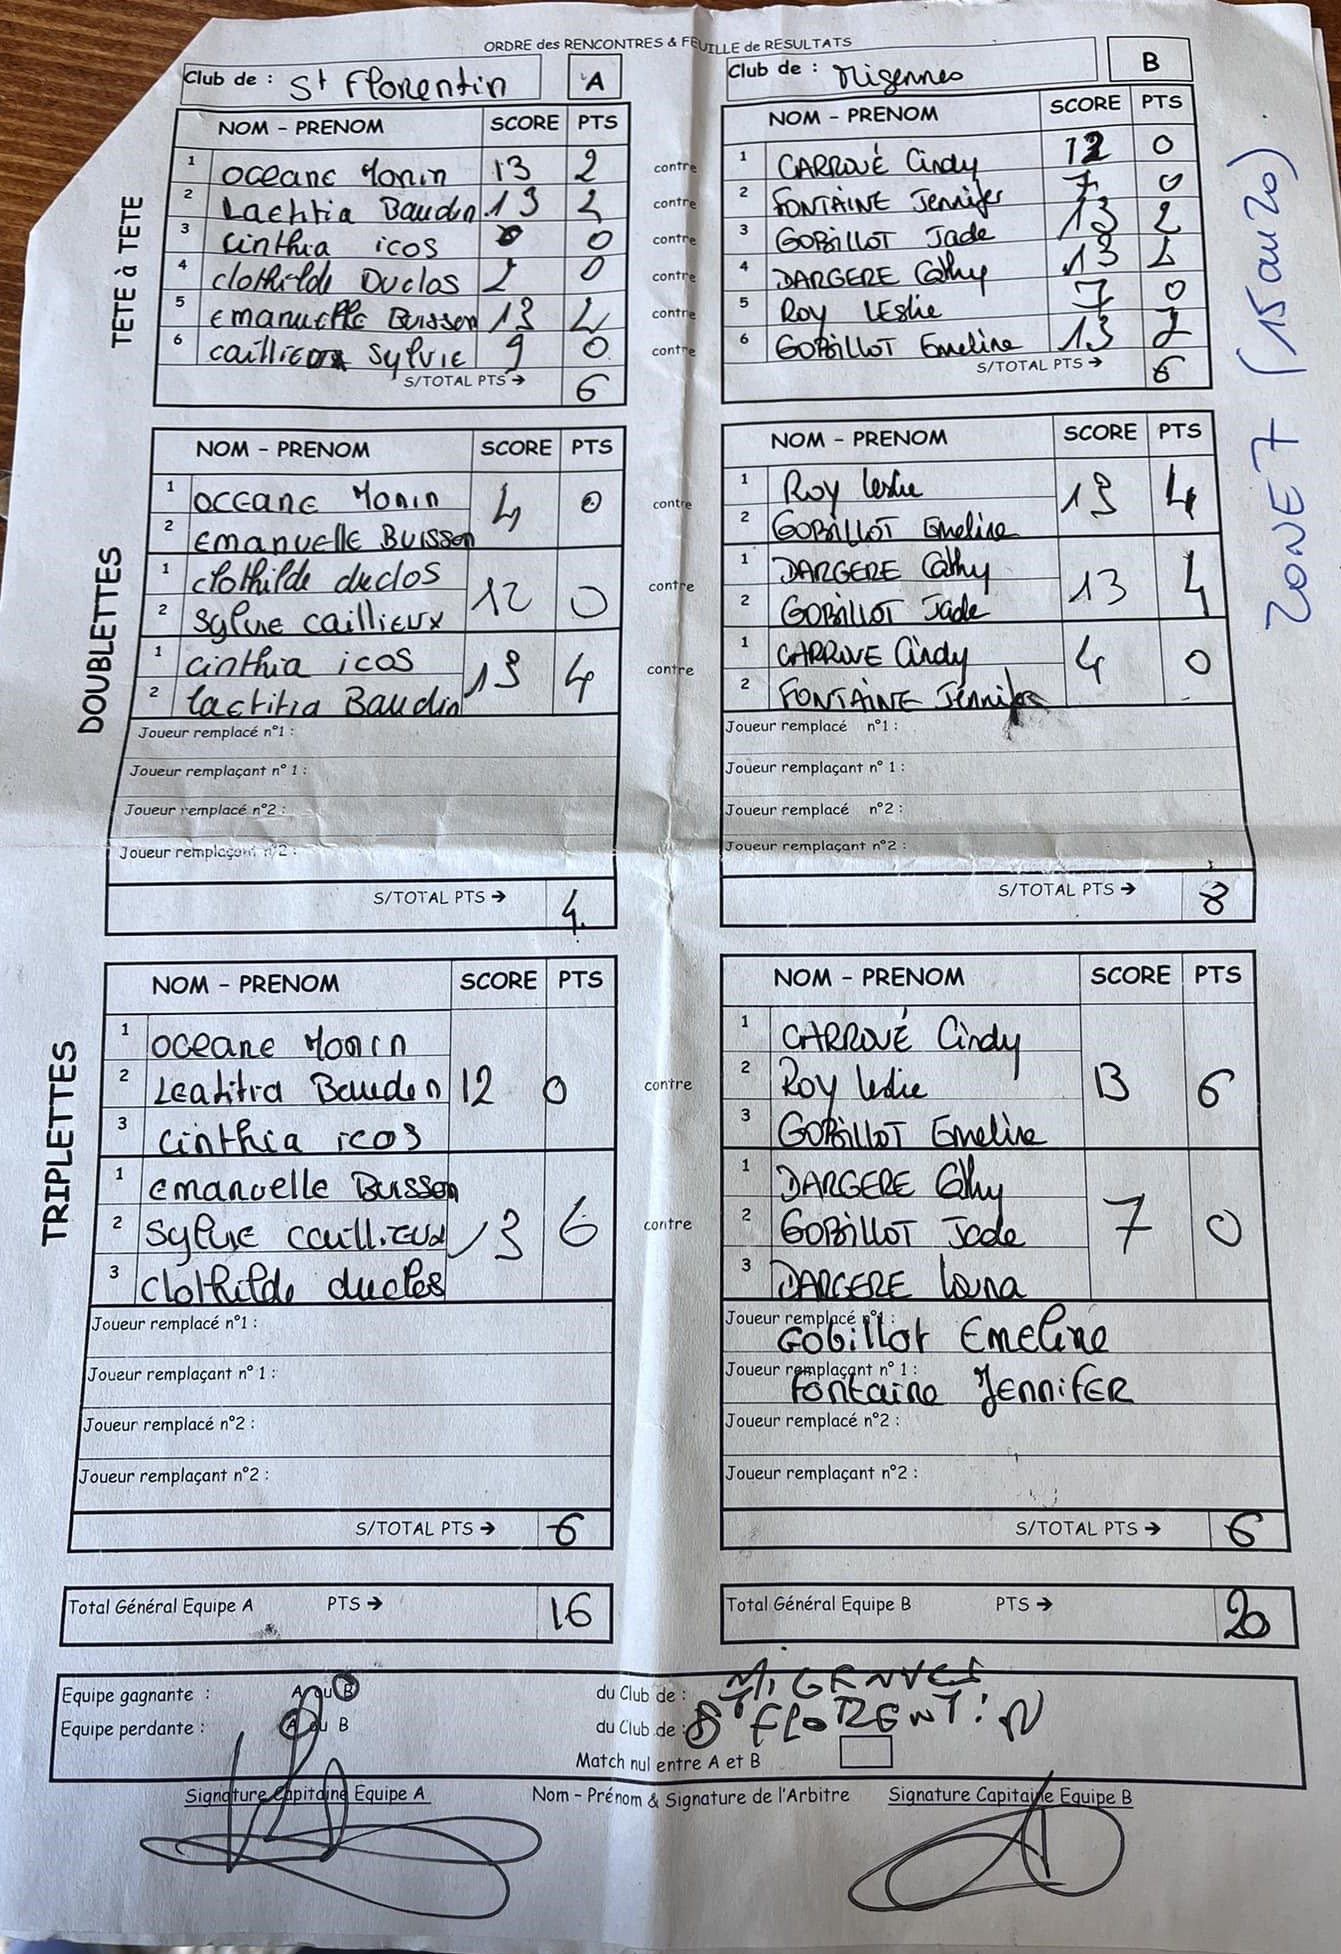 ORDRE des RENCONTRES & FEUILLE de RESULTATS
Club de : St Florentin A
NOM - PRENOM SCORE PTS
TETE à TETE
1 oceane Monin 13 2
2 Laetitia Baudin 13 2
3 cinthia icos 0
4 clothilde Duclos 2 0
5 emanuelle Buisson 13 2
6 caillieux Sylvie 9 0
S/TOTAL PTS → 6
contre
contre
contre
contre
contre
contre
Club de : Migennes B
NOM - PRENOM SCORE PTS
1 CARROUÉ Cindy 12 0
2 FONTAINE Jennifer 7 0
3 GOBILLOT Jade 13 2
4 DARGERE Cathy 13 2
5 Roy Leslie 7 0
6 GOBILLOT Emeline 13 2
S/TOTAL PTS → 6
ZONE 7 (15 au 20)
DOUBLETTES
NOM - PRENOM SCORE PTS
1 oceane Monin 4 0
2 emanuelle Buisson
1 clothilde duclos 12 0
2 sylvie caillieux
1 cinthia icos 13 4
2 laetitia Baudin
Joueur remplacé n°1 :
Joueur remplaçant n° 1 :
Joueur remplacé n°2 :
Joueur remplaçant n°2 :
S/TOTAL PTS → 4
contre
contre
contre
NOM - PRENOM SCORE PTS
1 Roy leslie 13 4
2 GOBILLOT Emeline
1 DARGERE Cathy 13 4
2 GOBILLOT Jade
1 CARROUE Cindy 4 0
2 FONTAINE Jennifer
Joueur remplacé n°1 :
Joueur remplaçant n° 1 :
Joueur remplacé n°2 :
Joueur remplaçant n°2 :
S/TOTAL PTS → 8
TRIPLETTES
NOM - PRENOM SCORE PTS
1 oceane Monin
2 Leatitia Bauden 12 0
3 cinthia icos
1 emanuelle Buisson
2 Sylvie caillieux 13 6
3 clothilde duclos
Joueur remplacé n°1 :
Joueur remplaçant n° 1 :
Joueur remplacé n°2 :
Joueur remplaçant n°2 :
S/TOTAL PTS → 6
contre
contre
NOM - PRENOM SCORE PTS
1 CARROUÉ Cindy
2 Roy leslie 13 6
3 GOBILLOT Emeline
1 DARGERE Cathy
2 GOBILLOT Jade 7 0
3 DARGERE Louna
Joueur remplacé n°1 : Gobillot Emeline
Joueur remplaçant n° 1 : Fontaine JENNIFER
Joueur remplacé n°2 :
Joueur remplaçant n°2 :
S/TOTAL PTS → 6
Total Général Equipe A PTS → 16
Total Général Equipe B PTS → 20
Equipe gagnante : A ou B du Club de : MIGENNES
Equipe perdante : A ou B du Club de : St FLORENTIN
Match nul entre A et B
Signature Capitaine Equipe A Nom - Prénom & Signature de l'Arbitre Signature Capitaine Equipe B